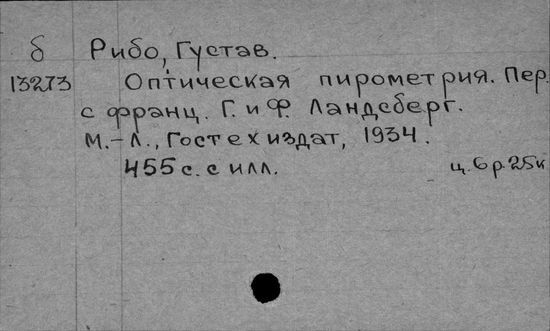 б Рибо, Густав.
13273 Оптическая пирометрия. Пер.
с франц. Г. и Ф. Ландсберг.
М.-Л., Гостехиздат, 1934.
455 с. с илл. ц. 6 р. 25 к